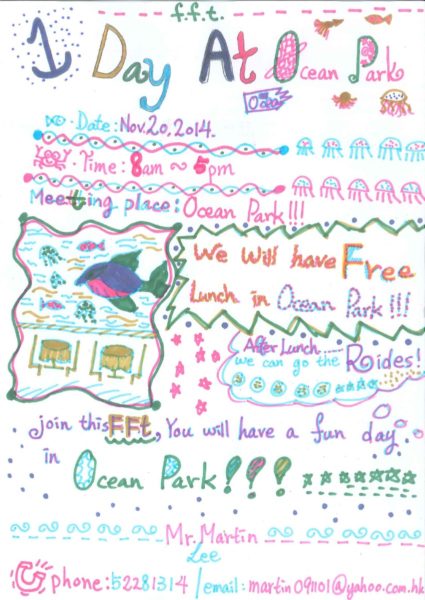 f.f.t.
1 Day At Ocean Park
Ocean
Date: Nov. 20, 2014.
Time: 8am ~ 5pm
Meeting place: Ocean Park!!!
We will have Free
Lunch in Ocean Park!!!
After Lunch......
we can go the Rides!
join this FFt, You will have a fun day
in Ocean Park!!!
Mr. Martin
Lee
phone: 52281314 / email: martin091101@yahoo.com.hk